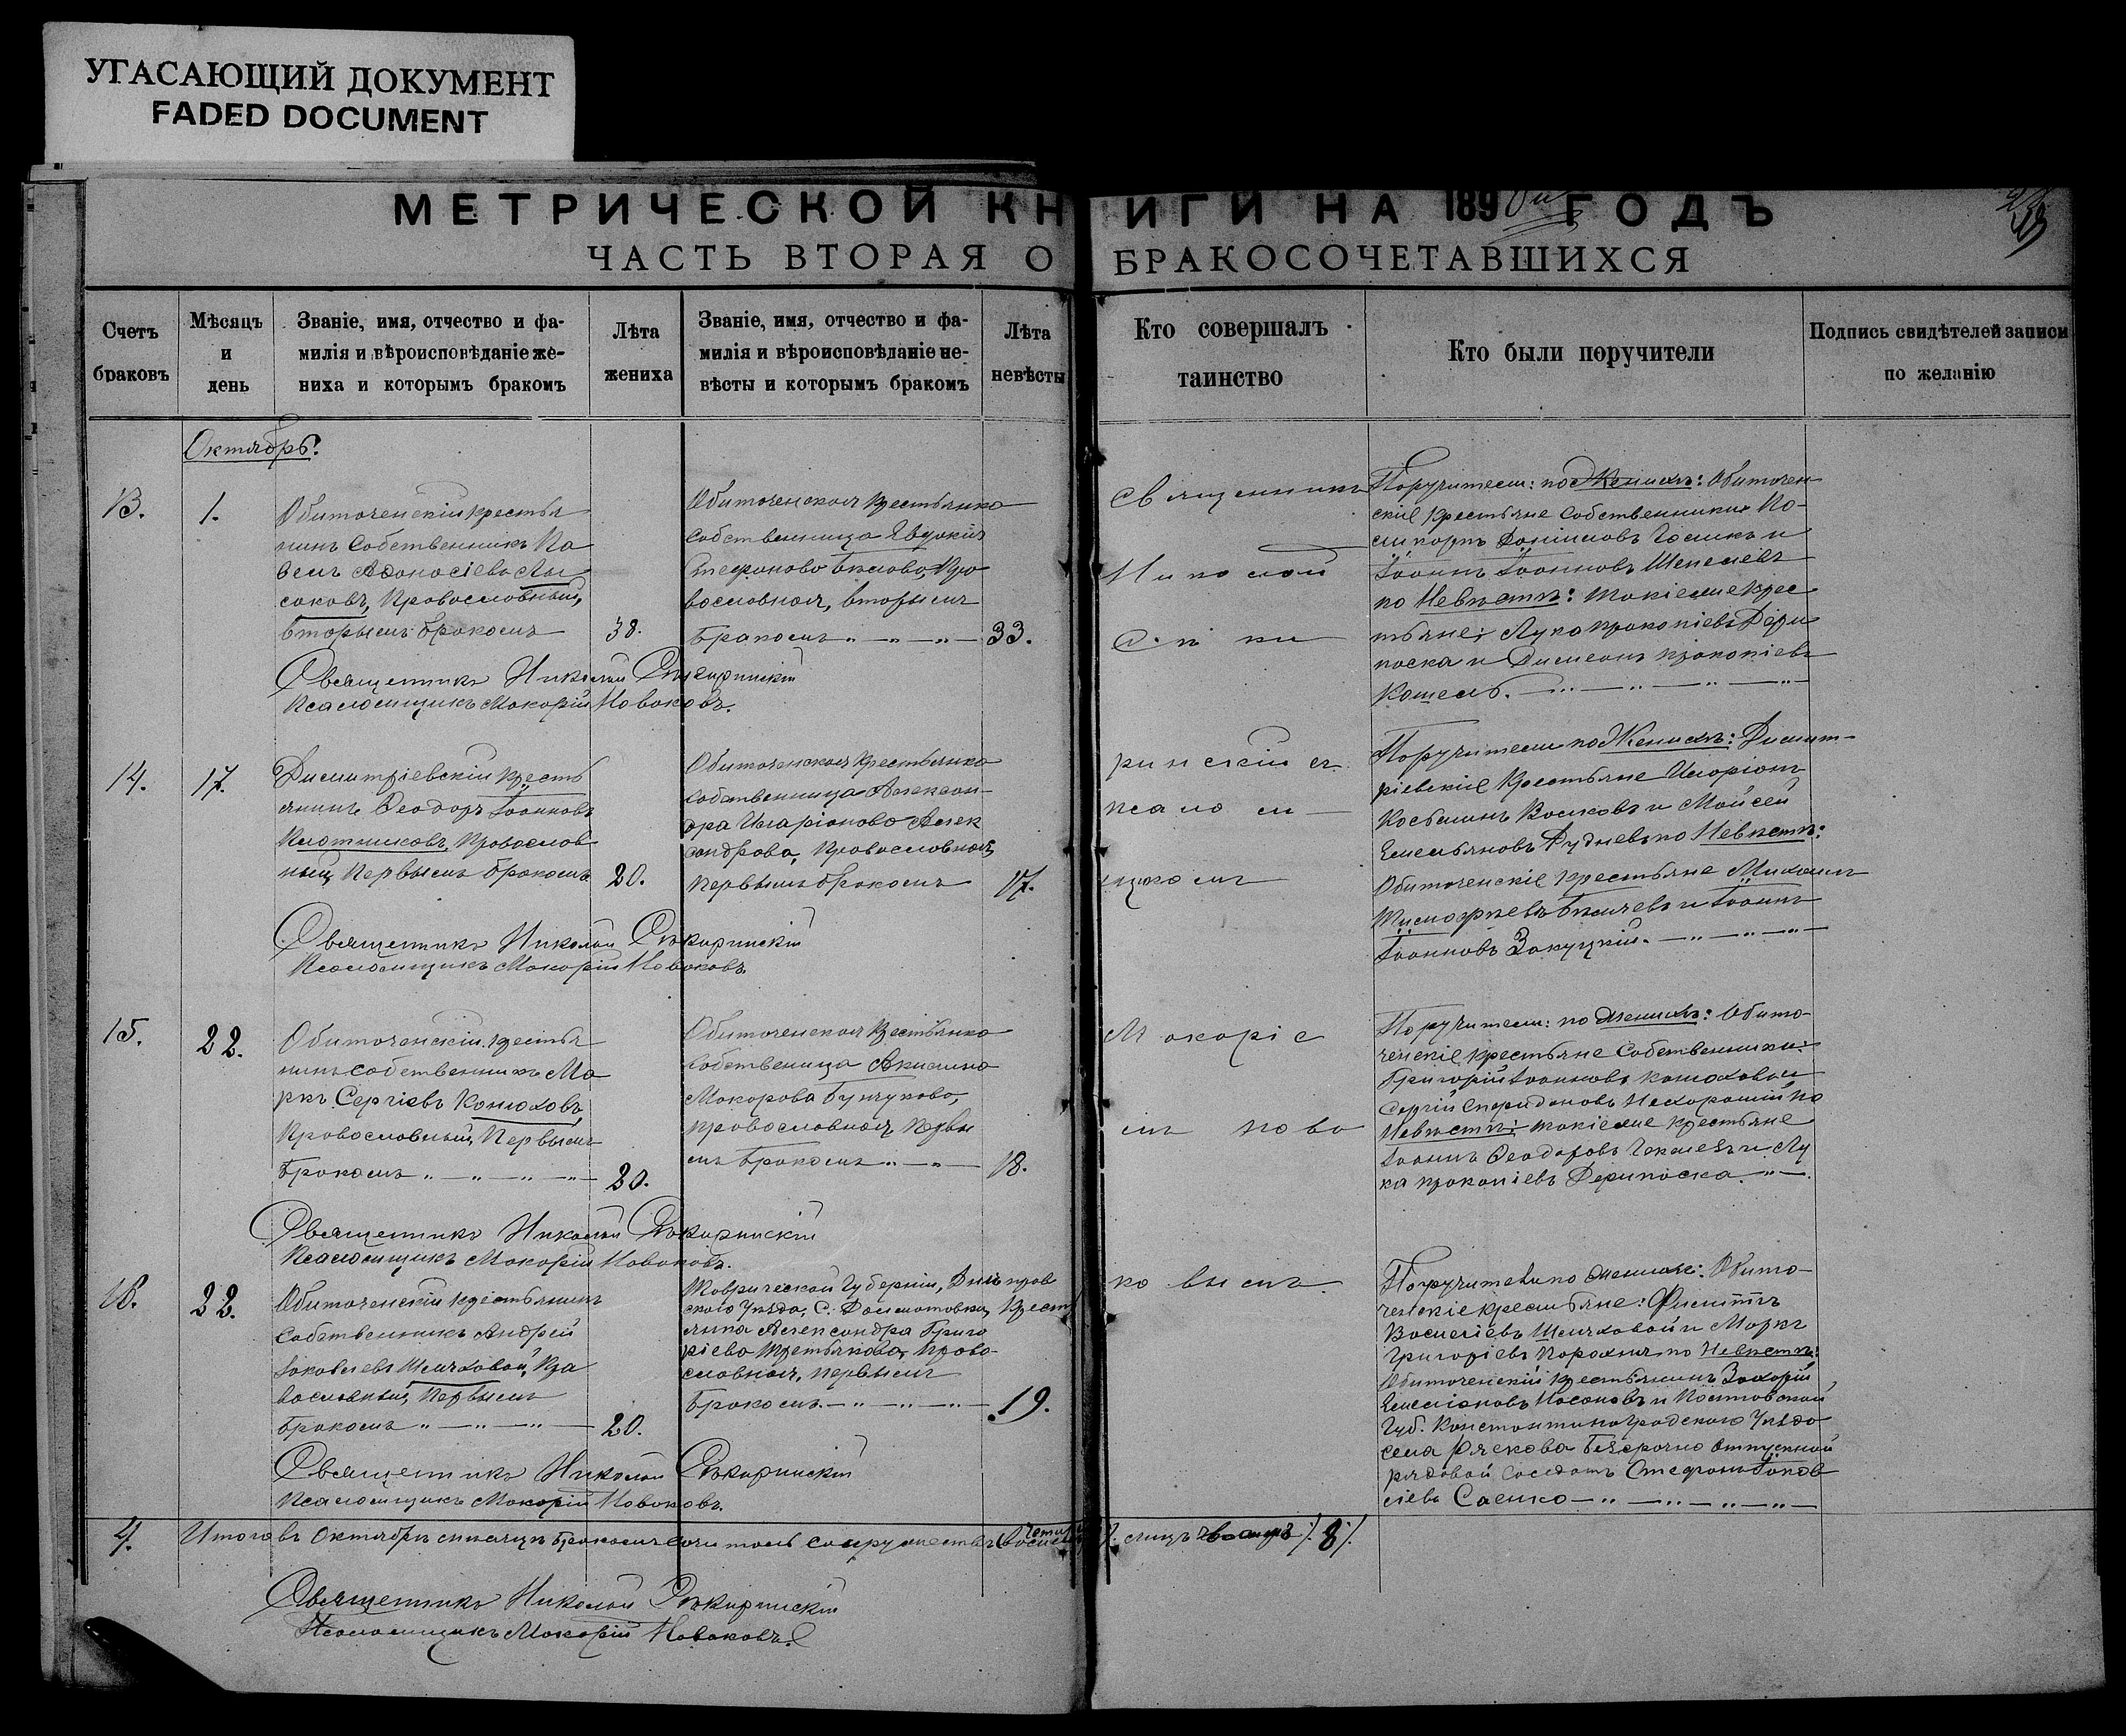 УГАСАЮЩИЙ ДОКУМЕНТ
FADED DOCUMENT
МЕТРИЧЕСКОЙ КНИГИ НА 1890й ГОДЪ
ЧАСТЬ ВТОРАЯ О БРАКОСОЧЕТАВШИХСЯ
Счетъ браковъ
Мѣсяцъ и день
Званіе, имя, отчество и фа-
милія и вѣроисповѣданіе же-
ниха и которымъ бракомъ
Лѣта жениха
Званіе, имя, отчество и фа-
милія и вѣроисповѣданіе не-
вѣсты и которымъ бракомъ
Лѣта невѣсты
Кто совершалъ
таинство
Кто были поручители
Подпись свидѣтелей записи
по желанію
Октябрь.
13.
1.
Обиточенскій крестья
нинъ собственникъ Па
велъ Аѳонасіевъ Лы
саковъ, Православный,
вторымъ бракомъ
38.
Обиточенская крестьянка
собственница Явдокія
Стефанова Бѣлова, Пра
вославная, вторымъ
бракомъ
33.
Поручители: по Женихѣ: Обиточен
скіе крестьяне собственники По-
ликарпъ Даніиловъ и
Іоаннъ Іоанновъ Шепелевъ
по Невѣстѣ: такіеже крес
тьяне: Лука Прокопіевъ Дери
паска и Симеонъ Прокопіевъ
Кошель.
Священникъ Николай Сѣкиринскій
Псаломщикъ Макарій Новаковъ.
14.
17.
Димитріевскій кресть
янинъ Ѳеодоръ Іоанновъ
Плотниковъ, Православ
ный, Первымъ бракомъ
20.
Обиточенская крестьянка
собственница Алексан-
дра Иларіонова Алек
сандрова, Православная,
первымъ бракомъ
17.
Поручители по Женихѣ: Димит-
ріевскіе Крестьяне Иларіонъ
Косьминъ Волковъ и Мойсей
Емельяновъ Рудневъ по Невѣстѣ:
Обиточенскіе крестьяне Михаилъ
Тимофѣевъ Бѣличевъ и Іоаннъ
Іоанновъ Закуцкій.
Священникъ Николай Сѣкиринскій
Псаломщикъ Макарій Новаковъ.
15.
22.
Обиточенскій крестья
нинъ собственникъ Ма
ркъ Сергіевъ Конюховъ,
Православный, Первымъ
бракомъ
20.
Обиточенская крестьянка
собственница Акилина
Макарова Бунчукова,
православная, Первы
мъ бракомъ
18.
Поручители: по женихѣ: Обито-
ченскіе крестьяне собственники:
Григорій Іоанновъ Конюховъ и
Сергій Спиридоновъ Нехорошій по
Невѣстѣ: такіеже крестьяне
Іоаннъ Ѳеодоровъ и Лу
ка Прокопіевъ Дерипаска.
Священникъ Николай Сѣкиринскій
Псаломщикъ Макарій Новаковъ.
16.
22.
Обиточенскій крестьянинъ
собственникъ Андрей
Іаковлевъ Шляховой, Пра
вославный, Первымъ
бракомъ
20.
Таврической Губерніи, Днѣпров
скаго Уѣзда, С. Далматовки, Крест
янка Александра Григо
ріева Третьякова, Право-
славная, первымъ
бракомъ
19.
Поручители по женихѣ: Обито-
ченскіе крестьяне: Филиппъ
Василіевъ Шляховой и Маркъ
Григоріевъ Порохня по Невѣстѣ:
Обиточенскій крестьянинъ Захарій
Емеліановъ Носоновъ и Полтавской
Губ. Константиноградскаго Уѣзда
села Рясково безсрочно отпускной
рядовой солдатъ Стефанъ Іаков
лієвъ Саенко
Священникъ Николай Сѣкиринскій
Псаломщикъ Макарій Новаковъ.
Священникъ
Николай
Сѣки
ринскій съ
псалом
щикомъ
Макарі
емъ Нова
ковымъ
4.
Итого въ Октябрѣ мѣсяцѣ бракомъ сочеталъ супружествъ лицъ 8
Священникъ Николай Сѣкиринскій
Псаломщикъ Макарій Новаковъ.